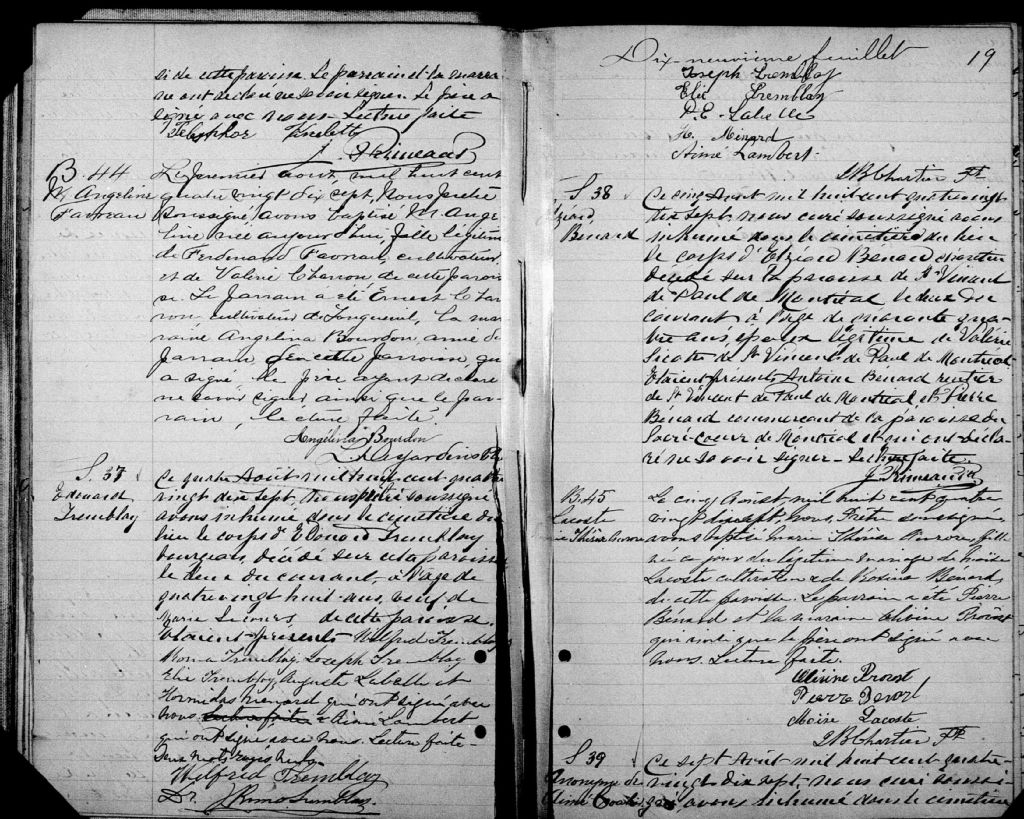 si de cette paroisse. Le parrain et la marrai-
ne ont déclaré ne savoir signer. Le père a
signé avec nous. Lecture faite
J. Primeau
B. 44
M. Angelina
Favreau
Le premier août, mil huit cent
quatre vingt dix sept, Nous prêtre
soussigné avons baptisé M. Ange-
line née aujourd'hui, fille légitime
de Ferdinand Favreau, cultivateur
et de Valérie Charron de cette parois-
se. Le parrain a été Ernest Char-
ron cultivateur de Longueuil, la mar-
raine Angelina Bourdon, amie du
parrain de cette paroisse qui
a signé, le père ayant déclaré
ne savoir signer ainsi que le par-
rain, lecture faite.
Angelina Bourdon
S. 37
Edouard
Tremblay
Ce quatre Août mil huit cent quatre
vingt dix sept, Nous prêtre soussigné
avons inhumé dans le cimetière du
lieu le corps d'Edouard Tremblay
bourgeois, décédé sur cette paroisse
le deux du courant, à l'age de
quatre vingt huit ans, veuf de
Marie de cette paroisse.
Etaient présents Wilfred Tremblay
Tremblay, Joseph Tremblay
Elie Tremblay, Auguste Labelle et
Hormidas Menard qui ont signé avec
nous lecture faite & Aimé Lambert
qui ont signé avec nous. Lecture faite.
Wilfrid Tremblay
Dix-neuvième feuillet
19
Joseph Tremblay
Elie Tremblay
H. Ménard
Aimé Lambert
JB Chartier Ptre
S 38
Bénard
Ce cinq Août mil huit cent quatre vingt
dix sept, nous curé soussigné avons
inhumé dans le cimetière du lieu
le corps d' Bénard
décédé sur la paroisse de St Vincent
de Paul de Montréal le deux du
courant à l'age de quarante qua-
tre ans, époux légitime de Valérie
Sicotte de St Vincent de Paul de Montréal
Etaient présents Antoine Bénard rentier
de St Vincent de Paul de Montréal et Pierre
Bénard commerçant de la paroisse du
Sacré-coeur de Montréal et qui ont décla-
ré ne savoir signer. Lecture faite.
J. Primeau
B. 45
Lacoste
Le cinq Août mil huit cent quatre
vingt dix sept, Nous, Prêtre soussigné
avons baptisé Marie Thérèse fille
née ce jour du légitime mariage de Moïse
Lacoste cultivateur & de Rosina Menard,
de cette paroisse. Le parrain a été Pierre
Bénard et la marraine Olivine Provost
qui ainsi que le père ont signé avec
nous. Lecture faite.
Olivine Provost
Pierre Benard
Moise Lacoste
JB Chartier Ptre
S 39
Anonyme de
Aimé
Ce sept Août mil huit cent quatre-
vingt dix sept, nous curé soussi-
gné, avons inhumé dans le cimetière